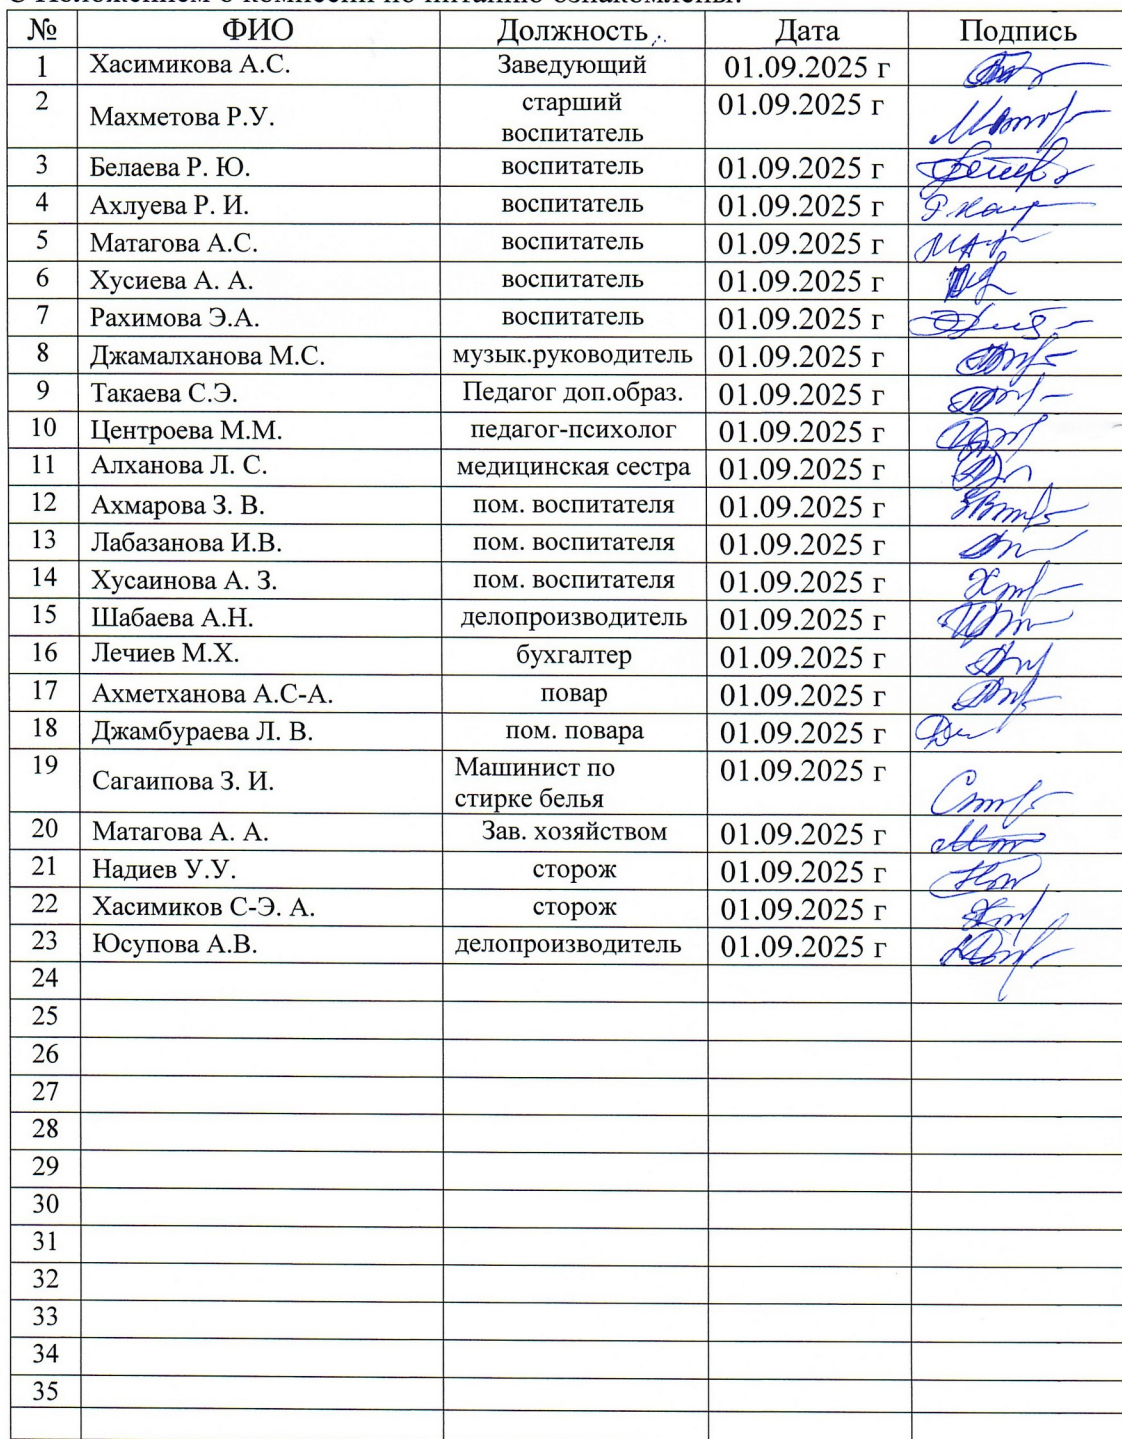 С Положением о комиссии по питанию ознакомлены:
№ ФИО Должность Дата Подпись
1 Хасимикова А.С. Заведующий 01.09.2025 г
2 Махметова Р.У. старший воспитатель 01.09.2025 г
3 Белаева Р. Ю. воспитатель 01.09.2025 г
4 Ахлуева Р. И. воспитатель 01.09.2025 г
5 Матагова А.С. воспитатель 01.09.2025 г
6 Хусиева А. А. воспитатель 01.09.2025 г
7 Рахимова Э.А. воспитатель 01.09.2025 г
8 Джамалханова М.С. музык.руководитель 01.09.2025 г
9 Такаева С.Э. Педагог доп.образ. 01.09.2025 г
10 Центроева М.М. педагог-психолог 01.09.2025 г
11 Алханова Л. С. медицинская сестра 01.09.2025 г
12 Ахмарова З. В. пом. воспитателя 01.09.2025 г
13 Лабазанова И.В. пом. воспитателя 01.09.2025 г
14 Хусаинова А. З. пом. воспитателя 01.09.2025 г
15 Шабаева А.Н. делопроизводитель 01.09.2025 г
16 Лечиев М.Х. бухгалтер 01.09.2025 г
17 Ахметханова А.С-А. повар 01.09.2025 г
18 Джамбураева Л. В. пом. повара 01.09.2025 г
19 Сагаипова З. И. Машинист по стирке белья 01.09.2025 г
20 Матагова А. А. Зав. хозяйством 01.09.2025 г
21 Надиев У.У. сторож 01.09.2025 г
22 Хасимиков С-Э. А. сторож 01.09.2025 г
23 Юсупова А.В. делопроизводитель 01.09.2025 г
24
25
26
27
28
29
30
31
32
33
34
35